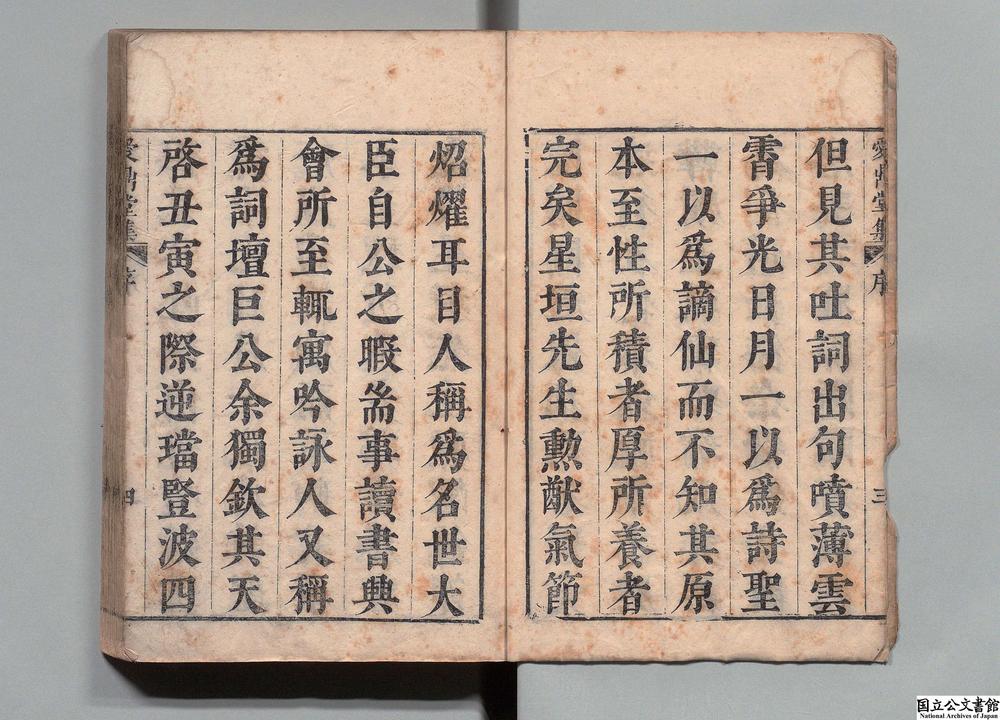 愛鼎堂集
序
三
但見其吐詞出句噴薄雲
霄爭光日月一以爲詩聖
一以爲謫仙而不知其原
本至性所積者厚所養者
完矣星垣先生勲猷氣節
炤燿耳目人稱爲名世大
臣自公之暇耑事讀書興
會所至輒寓吟詠人又稱
爲詞壇巨公余獨欽其天
啓丑寅之際逆璫豎波四
愛鼎堂集
序
四
国立公文書館
National Archives of Japan